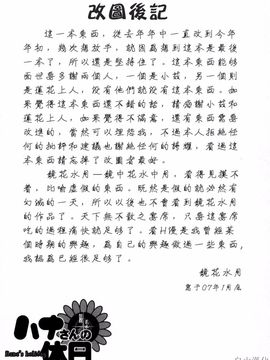 改圖後記
這一本東西，從去年年中一直改到今年
年初，幾次想放手，就因為想到這本是最後
一本了，所以還是堅持住了。這本東西能夠
面世要多謝兩個人，一個是小茲，另一個則
是蓮花上人，沒有他們就沒有這本東西。如
果覺得這本東西還不錯的話，請感謝小茲和
蓮花上人，如果覺得不滿意，還有東西需要
改進的，當然可以埋怨我，不過本人拒絕任
何的批評和建議也謝絕任何的轉載，看過這
本東西請忘掉了改圖者最好。
鏡花水月—鏡中花水中月，看得見摸不
著，比喻虛假的東西。既然是假的就終然有
幻滅的一天，所以以後也不會看到鏡花水月
的作品了。天下無不散之宴席，只要這宴席
吃的過程痛快就足够了。看H漫是我曾經某
個時期的興趣，為自己的興趣做過一些東西，
我認為已經很足够了。
鏡花水月
寫于07年1月底
ハナさんの休日
Hana's holiday